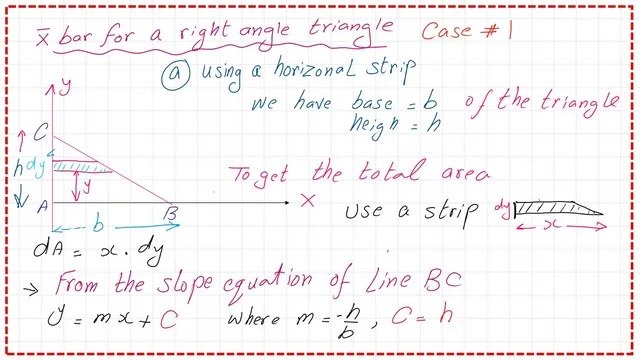 x̄ bar for a right angle triangle Case #1
ⓐ using a horizonal strip
we have base = b of the triangle
heigh = h
y
C
h dy
y
To get the total area
A B X
b
use a strip dy
x
dA = x . dy
→ From the slope equation of Line BC
y = mx + C where m = -h/b , C = h